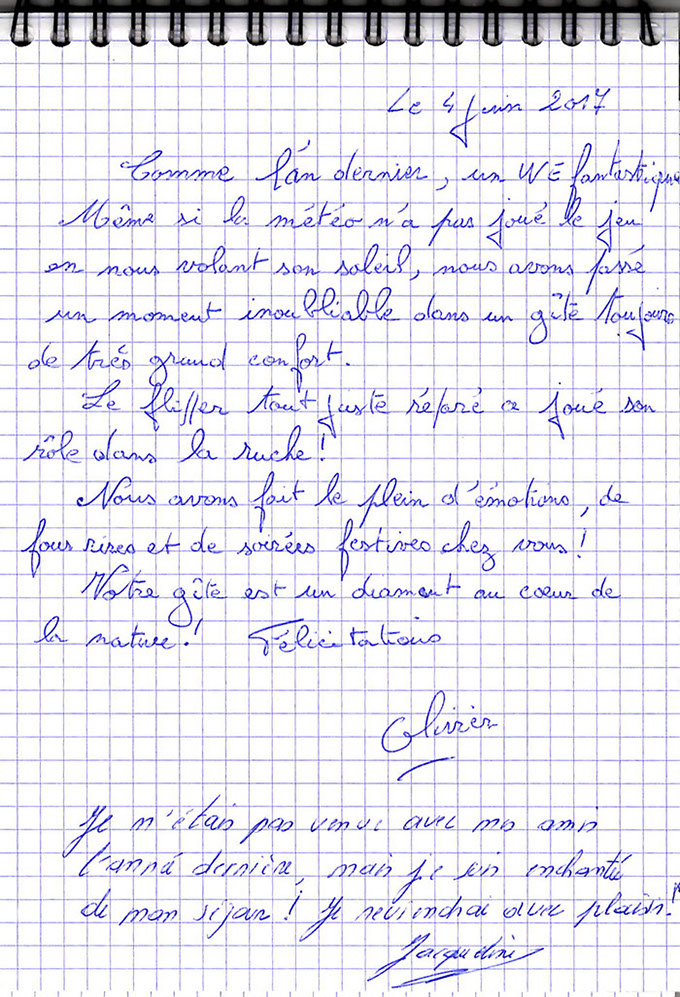 Le 4 Juin 2017
Comme l'an dernier, un WE fantastique
Même si la météo n'a pas joué le jeu
en nous volant son soleil, nous avons passé
un moment inoubliable dans un gîte toujours
de très grand confort.
Le flipper tout juste réparé a joué son
rôle dans la ruche!
Nous avons fait le plein d'émotions, de
fous rires et de soirées festives chez vous!
Votre gîte est un diamant au cœur de
la nature! Félicitations
Olivier
Je n'étais pas venue avec mes amis
l'anné dernière, mais je suis enchantée
de mon séjour! Je reviendrai avec plaisir!
Jacqueline